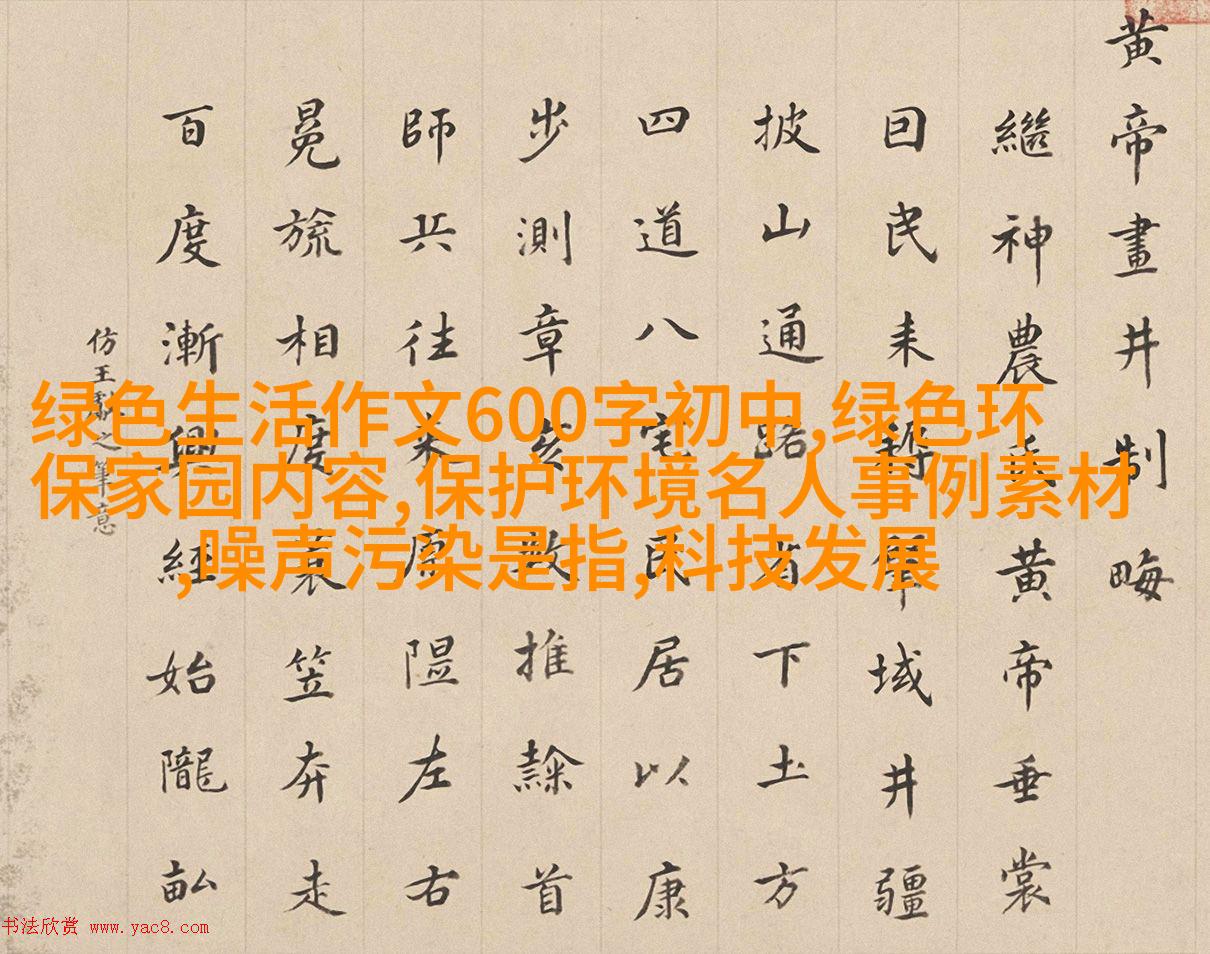 黄帝畫井制畮
繼神農氏黄帝垂裳
囙民耒肇域井疆
披山通路省下土方
四道八宅民居以康
步測章亥數推隸首
師兵往來原隰左右
冕旒相度蓑笠奔走
百度漸興經始隴畝
仿王獻之筆意
绿色生活作文600字初中,绿色环
保家园内容,保护环境名人事例素材
,噪声污染是指,科技发展
书法欣赏 www.yac8.com